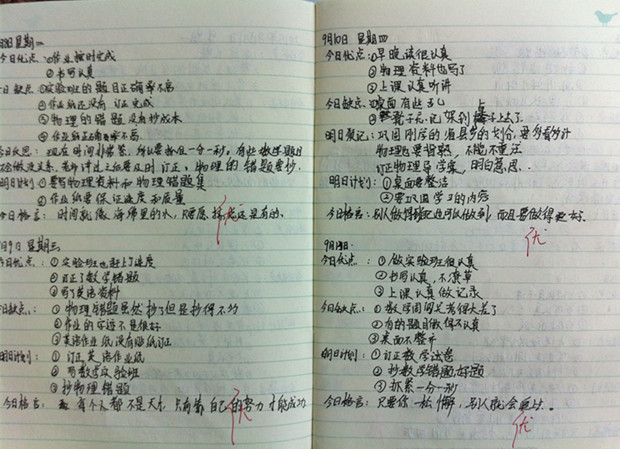 月8日 星期二
今日优点：①作业按时完成
②书写认真
今日缺点：①实验班的题目正确率不高
②作业纸还没有订正完成
③物理的错题没有抄成本
④作业纸正确率不高
今日反思：现在时间非常紧，所以要抓住一分一秒，有些数学题目
老师讲过之后要及时订正，物理的错题要抄
明日计划：①要写物理资料和物理错题集
②作业纸要保证速度和质量
今日格言：时间就像海绵里的水，只要愿挤总还是有的。
月9日 星期三
今日优点：①实验班也赶上了速度
②订正了数学错题
③写了英语资料
今日缺点：①物理错题虽然抄了但是抄得不多
②作业的字迹不是很好
③英语作业纸没有及时订正
明日计划：①订正英语作业纸
②写数学实验班
③抄物理错题
今日格言：每个人都不是天才，只有靠自己的努力才能成功
优
9月10日 星期四
今日优点：①早晚读很认真
②物理资料也写了
③上课认真听讲
今日缺点：①桌面有些乱
明日要记：巩固刚学的
物理也要背熟，不能不重视
订正物理导学案，明白意思
明日计划：①桌面要整洁
②要巩固学习的内容
今日格言：别人做得到我也可以做到，而且要做得更好。
优
9月11日
今日优点：①做实验班很认真
②书写认真，不潦草
③上课认真做记录
今日缺点：①数学周周考得太差了
②有的题目做得不认真
③桌面不整洁
明日计划：①订正数学试卷
②抄数学错题好题
③抓紧一分一秒
今日格言：只要你一松懈，别人就会超上。
优